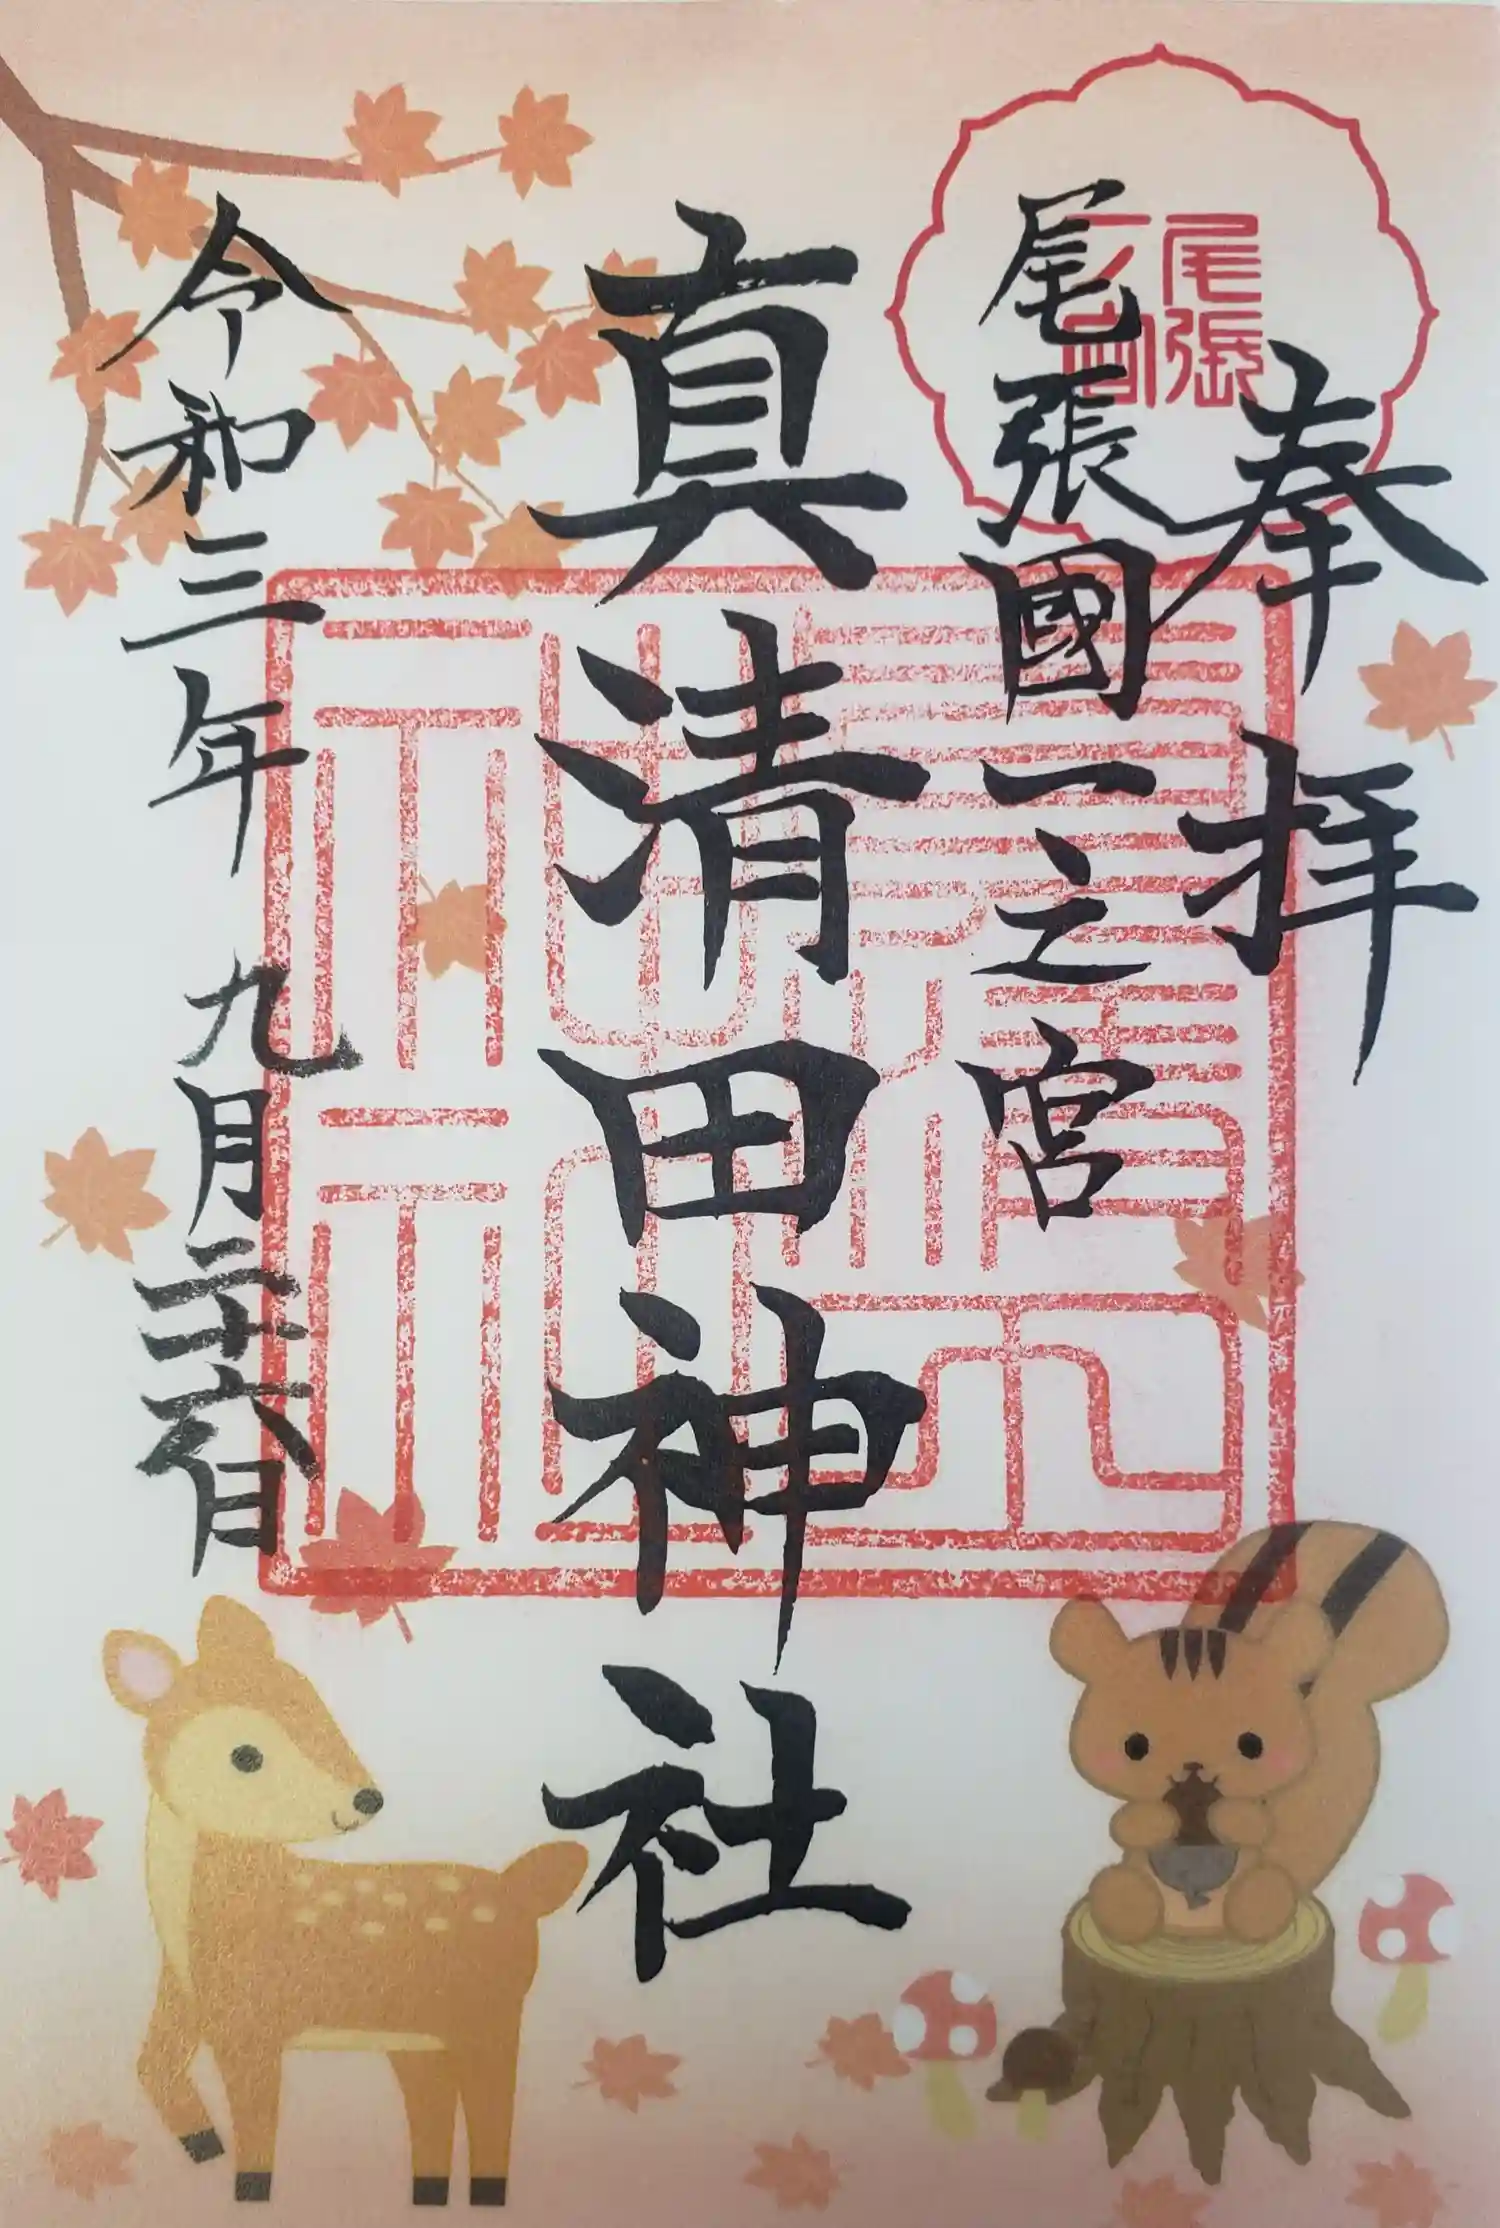 奉拝
尾張國一之宮
尾張
一宮
真清田神社
真清田神社
令和三年 九月二十六日